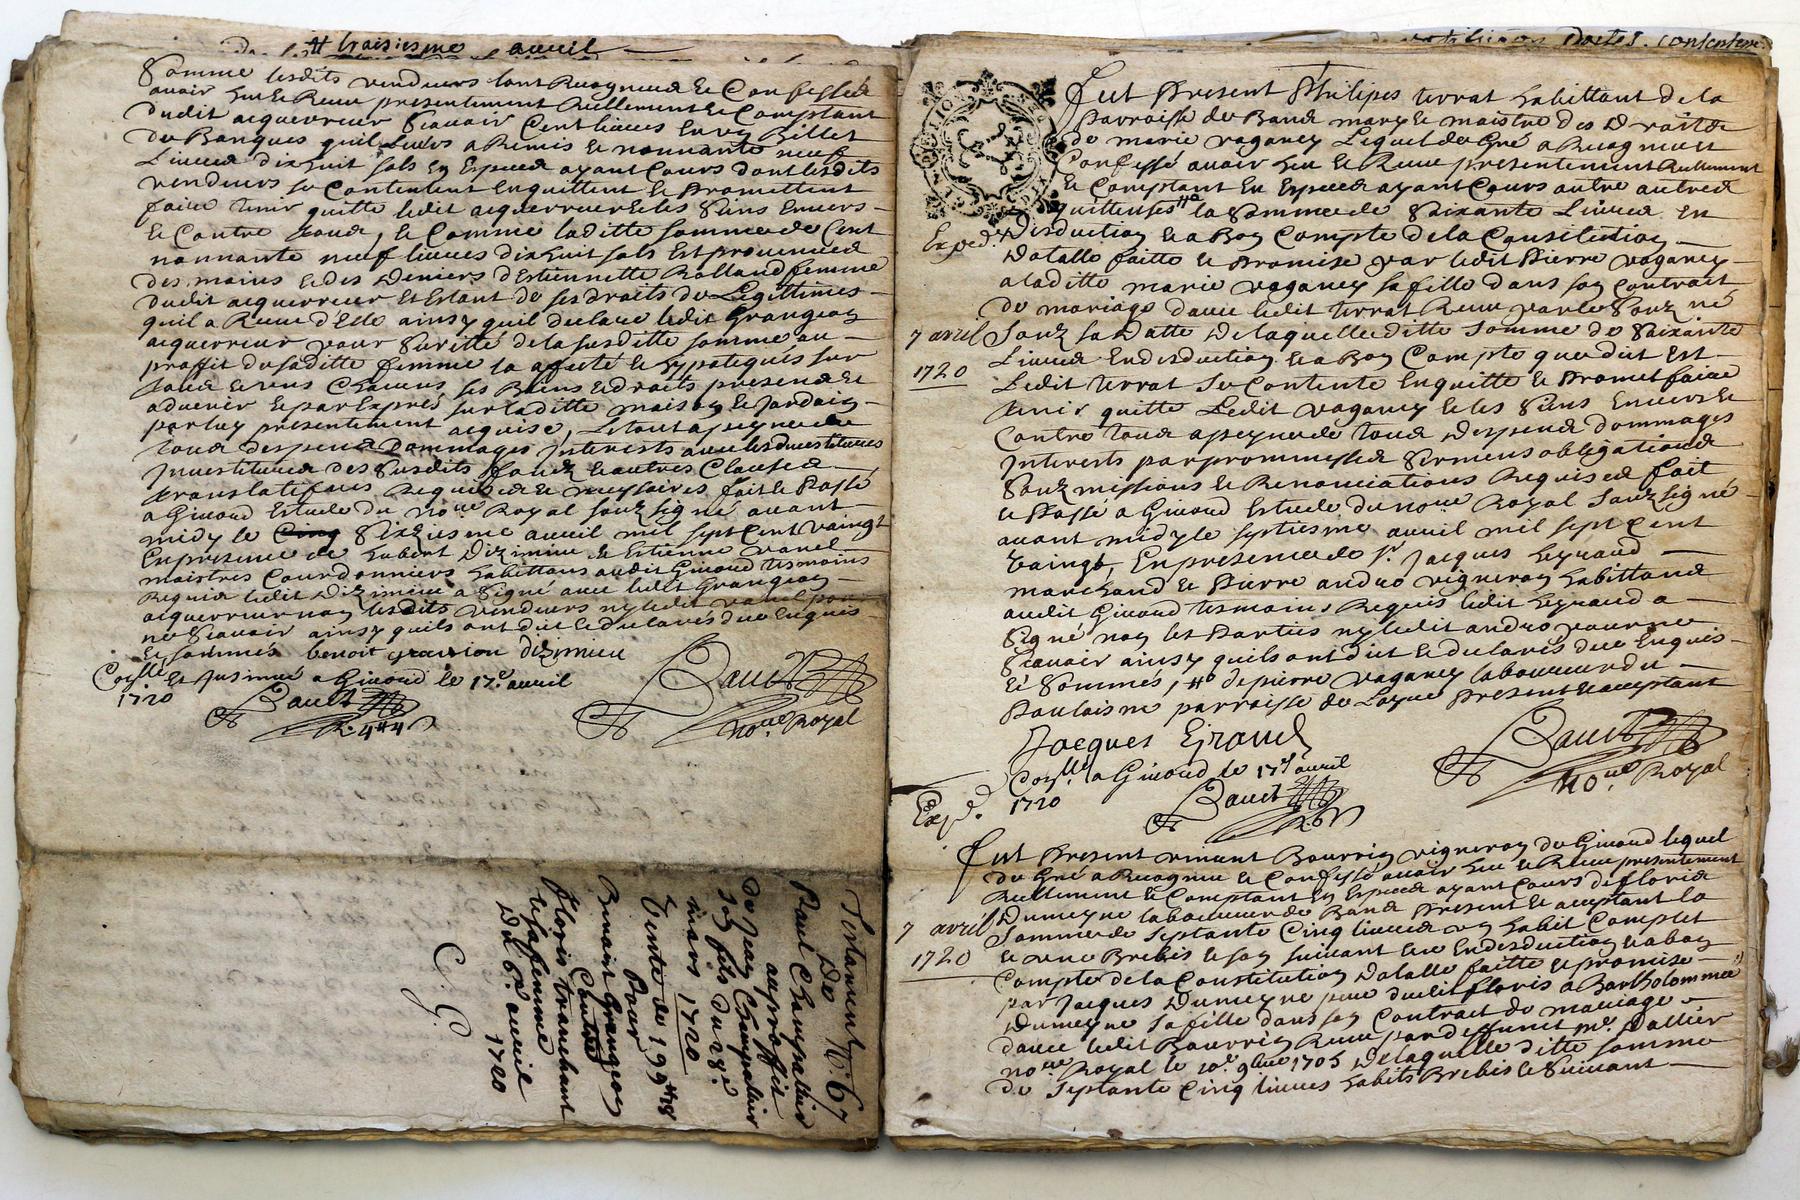 # troisiesme auril
Somme lesdits vendeurs font Recogneu & Confessé
auoir heu & Receu presentement Rellement & Comptant
dudit acquerreur Scauoir Cent liures En vn Billet
de Banques quil leurs a Remis & nonnante neuf
Liures dix huit sols En Especes ayant Cours dont lesdits
vendeurs se Contentent Enquittent & Promettent
faire tenir quitte ledit acquerreur & les Siens Enuers
& Contre tous, & Comme laditte somme de Cent
nonnante neuf liures dix huit sols Est prouenues
des mains & des Deniers d'Estiennette Rolland femme
dudit acquerreur Et Estant de ses droits de Legittimes
quil a Receu d'Elle ainsy quil declare ledit Grangeon
acquerreur pour Suritté de la susditte somme au
proffit de saditte femme la assuté & hypotequés sur
tous & vns Chacuns ses Biens & droits presens &
aduenir & par Exprés sur laditte maison & Jardain
par luy presentement acquise, Le tout a peyne de
tous despens Dommages Interests auec les deuestitures
Inuestitures des Susdits fonds & autres Clauses
translatifues Requises & necessaires fait & Passé
a Giuord Estude du nore Royal soubsigné auant
midy le Cinq Sixiesme auril mil sept Cent Vaingt
En presence de hubert Dizimieu & Estienne vanel
maistres Courdonniers habittans audit Giuord tesmoins
Requis ledit Dizimieu a Signé auec ledit Grangeon
acquerreur non lesdits vendeurs ny ledit vanel pour
ne Scauoir ainsy quils ont dit & declarés deue Enquis
& sommés benoit gransion dizimieu
Conllé Et Insinué a Giuord le 17e auril
1720
Bauct
R. 4# 4s
Bauct
nore Royal
Testament No 67
De
Paul Champallier
au proffit
De Jean Champallier
son fils Du 28e
mars 1720
Vente de 199# 18s
Pour
Benoit Grangeon
Contre
Floris tranchant
& sa femme
Du 6e auril
1720
C. G.
Fut Present Philipes terrat habittant de la
Parroisse de Bans mary & maistre des Droits
de marie vaganey Lequel de Gré a Recogneu &
Confessé auoir heu & Receu presentement Rellement
& Comptant En Especes ayant Cours autre autres
quittenses la Somme de Soixante Liures En
Exped.
Desduction & a Bon Compte de la Constitution
Dotalle faitte & Promise par ledit Pierre vaganey
a laditte marie vaganey sa fille dans son Contrat
de mariage d'auec ledit terrat Receu par le Soub né
7 avril
1720
Soubz sa Datte De laquelle ditte somme de Soixante
Liures En desduction & a Bon Compte que dit Est
Ledit terrat Se Contente Enquitte & Promet faire
tenir quitte Ledit vaganey & les Siens Enuers &
Contre tous a peyne de tous Despens dommages
Interests par prommesses Sermens obligations
Soubzmissions & Renonciations Requises fait
& Passé a Giuord Estude du nore Royal soubsigné
auant midy le septiesme auril mil sept Cent
Vaingt, En presence de Sr. Jacques Eyraud
marchand & Pierre andro vigneron habittans
audit Giuord tesmoins Requis ledit Eyraud a
Signé non les Parties ny ledit andro pour ne
Scauoir ainsy quils ont dit & declarés deue Enquis
& Sommés, # de pierre vaganey laboureur du
parroisse de Present & acceptant
Jacques Eyraud
Bauct
nore Royal
Conllé a Giuord le 17e auril
1720
Bauct
Exp.
Fut Present vincent Bourrin vigneron de Giuord lequel
de Gré a Recogneu & Confessé auoir heu & Receu presentement
Rellement & Comptant En Especes ayant Cours de floris
Dumeyne laboureur de Bans Present & acceptant la
7 avril
1720
Somme de Septante Cinq liures vn habit Complet
& vne Brebis & son Suiuant En desduction & a bon
Compte de la Constitution Dotalle faitte & promise
par Jacques Dumeyne pere dudit floris a Bartholommee
Dumeyne sa fille dans son Contrat de mariage
d'auec ledit Bourrin Receu par deffunct Me. Dallier
nore Royal le 20e 9bre 1705 De laquelle ditte somme
de Septante Cinq liures habits Brebis & Suiuant